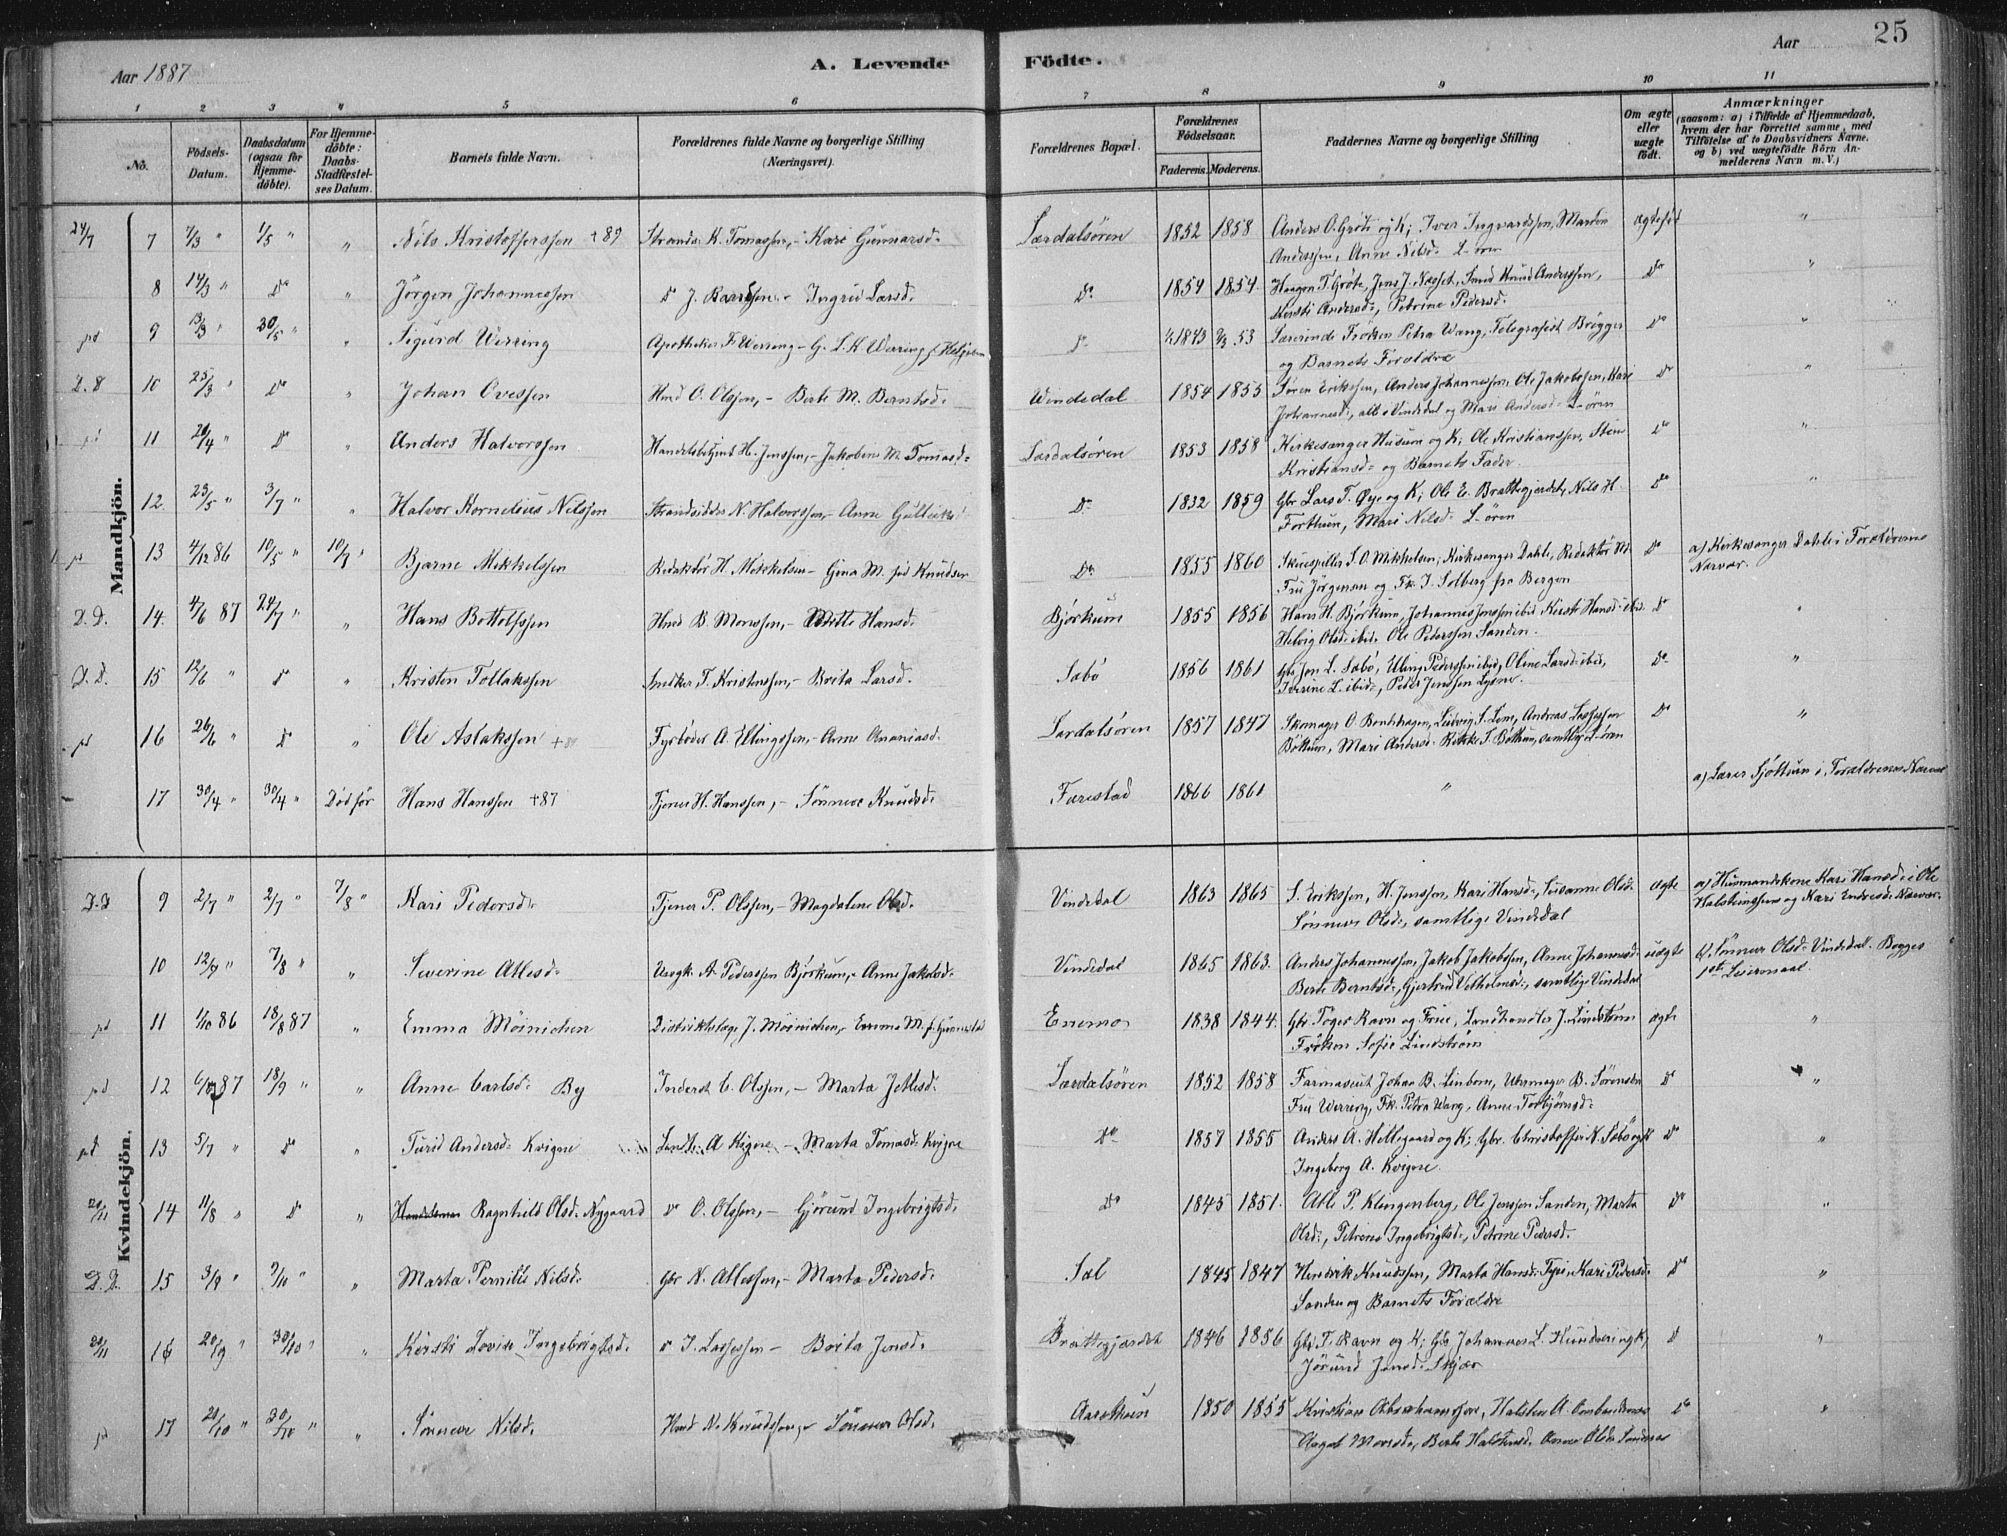 25
Aar 1887
A. Levende Födte.
Aar
1 2 3 4 5 6 7 8 9 10 11
No.
Födsels-Datum.
Daabsdatum (ogsaa for Hjemme-döbte).
For Hjemme-döbte: Daabs-Stadfæstel-ses Datum.
Barnets fulde Navn.
Forældrenes fulde Navne og borgerlige Stilling (Næringsvei).
Forældrenes Bopæl.
Forældrenes Födselsaar.
Faderens. Moderens.
Faddernes Navne og borgerlige Stilling
Om ægte eller uægte födt.
Anmærkninger
(saasom: a) i Tilfælde af Hjemmedaab, hvem der har forrettet samme, med Tilföielse af to Daabsvidners Navne. og b) ved uægtefödte Börn An-melderens Navn m. V.)
Mandkjön.
24/7 7 7/3 " 1/5 " " Nils Kristofferssen +89 K. Tomassen, - Kari Gunnarsd. Lærdalsören 1852 1858 Anders O. Gröte og K; Iver Ingvardssen, Marten ægtefød "
Anderssen, Anne Nilsd. L-ören
8 14/3 " Do " Jörgen Johannessen Do J. Baardsen - Ingrid Larsd. Do 1854 1854 Haagen T. Gröte, Jens J. Næsset, Smed Knud Anderssen, Do "
Kersti Andersd:, Petrine Pedersd.
pd 9 13/3 " 30/5 " " Sigurd Werring Apotheker F. Werring - G. L. K. Werring f. Do 1843 53 Lærerinde Fröken Petra Wang, Telegrafist Brögger Do "
og Barnets Forældre
D.D 10 25/3 " Do " Johan Ovessen Hmd O. Olssen, - Berte M. Berntsd. Windedal 1854 1855 Sören Erikssen, Anders Johannessen, Ole Jakobssen, Kari Do "
Johannesd:, alle i Vindedal og Mari Andersd: L-ören
pd 11 20/4 " Do " Anders Halvorssen Handelsbetjent H. Jenssen, - Jakobine M. Tomasd: Lærdalsören 1853 1858 Kirkesanger Husum og K; Ole Kristianssen, Sten Do "
Kristiansd: og Barnets Fader.
12 23/5 " 3/7 " " Halvor Kornelius Nilssen Strandsidder N. Halvorssen, - Anne Do 1832 1859 Gbr Lars T. Øye og K; Ole E. Brattegjerdet, Nils H. Do "
Forthun, Mari Nilsd: L-ören
pd 13 4/12 86 10/5 " 10/3 " Bjarne Mikkelssen Redaktör H. Mikkelsen - Gina M. fød Knudsen Do 1855 1860 Skuespiller S. O. Mikkelsen, Kirkesanger Dahle, Redaktör Do a) Kirkesanger Dahle i Forældrenes
Fru Jörgensen og Fk. J. Solberg fra Bergen Nærvær.
D.D. 14 4/6 87 24/7 " " Hans Bottolfssen Hmd B. Monssen, - Mette Hansd. Björkum 1855 1856 Hans H. Björkum, Johannes Jenssen ibid Kirsti Hansd: ibid Do "
Helvig Olsd: ibid:, Ole Pederssen Sanden.
D.D. 15 12/6 " Do " Kristen Tollakssen Snedker T. Kristenssen, - Brita Larsd. Sæbö 1856 1861 Gbr Jon L. Sæbö, Uling Pederssen ibid, Oline Larsd: ibid, Do "
Iverine L. ibid:, Peder Jenssen Lysne.
pd 16 26/6 " Do " Ole Aslakssen + Fyrböder A. Ellingssen, - Anne Ananiasd. Lærdalsören 1857 1847 Skomager O. Bentehagen, Ludvig S. Lem, Andreas Lassessen Do "
Böthun, Mari Andersd: Rikke T. Böthun, samtlige L-ören
17 30/4 " 30/4 " Död för Hans Hanssen +87 Tjener H. Hanssen, - Sönneve Knudsd. Farestad 1866 1861 " a) Lærer Sjöthun i Forældrenes Nærvær
Kvindekjön.
D.D 9 2/7 " 2/7 " 7/8 " Kari Pedersd. Tjener P. Olssen, - Magdalene Olsd. Vindedal 1863 1865 S. Erikssen, H. Jenssen, Kari Hansd:, Susanne Olsd: ægte a) Husmandskone Kari Hansd: i Ole
Sönneve Olsd:, samtlige Vindedal Halsteinssens og Kari Endresds Nærvær.
10 12/7 " 7/8 " " Severine Atlesd: Ungk. A. Pederssen Björkum, - Anne Jakobsd. Vindedal 1865 1863 Anders Johannessen, Jakob Jakobssen, Anne Johannesd: uægte b) Sönneve Olsd: Vindedal. Begges
Berte Berntsd:, Gjertrud Vilhelmsd:, samtlige Vindedal 1ste Leiermaal.
pd 11 1/10 86 18/8 87 " Emma Möinichen Distriktslæge J. Möinichen, - Emma M. f. Enemo 1838 1844 Gbr Töger Ravn og Frue, Landhandler J. Lindström ægte "
Fröken Sofie Lindström
pd 12 87 18/9 " " Anne Carlsd: By Inderst C. Olssen, - Marta Jetlesd. Lærdalsören 1852 1858 Farmaceut Johan B. Linbom, Uhrmager B. Sörensen Do "
Fru Werring, Fk. Petra Wang, Anne Torbjörnsd:
pd 13 5/7 " Do " Turid Andersd: Kvigne A. Kvigne - Marta Tomasd: Kvigne Do 1857 1855 Anders A. Hellegaard og K; Gbr. Christoffer N. Sæbö og K Do "
Ingeborg A. Kvigne.
20/11 14 11/8 " Do " Ragnhild Olsd. Nygaard Do O. Olssen, - Gjörund Ingebrigtsd. Do 1845 1851 Atle P. Klingenberg, Ole Jenssen Sanden, Marta Do "
Olsd:, Petrine Ingebrigtsd:, Petrine Pedersd.
D.D. 15 3/9 " 2/10 " " Marta Pernille Nilsd: Gbr N. Atlessen, - Marta Pedersd. Sæl 1845 1847 Hendrik Knudssen, Marta Hansd: Kari Pedersd: Do "
Sanden og Barnets Forældre
20/11 16 20/9 " 30/10 " " Kirsti Lovise Ingebrigtsd. Do I. Lassessen - Brita Jensd. Brattegjerdet 1846 1856 Gbr T. Ravn og K; Gbr Johannes L. Hunderi og K, Do "
Jörund Jensd: Skjær
pd 17 20/10 " 30/10 " " Sönneve Nilsd. Hmd N. Knudssen, - Sönneve Olsd. Aarethun 1850 1855 Kristian Abrahamssen, Halsten A. Do "
Aagot Monsd:, Berte Halstensd: Anne Olsd: